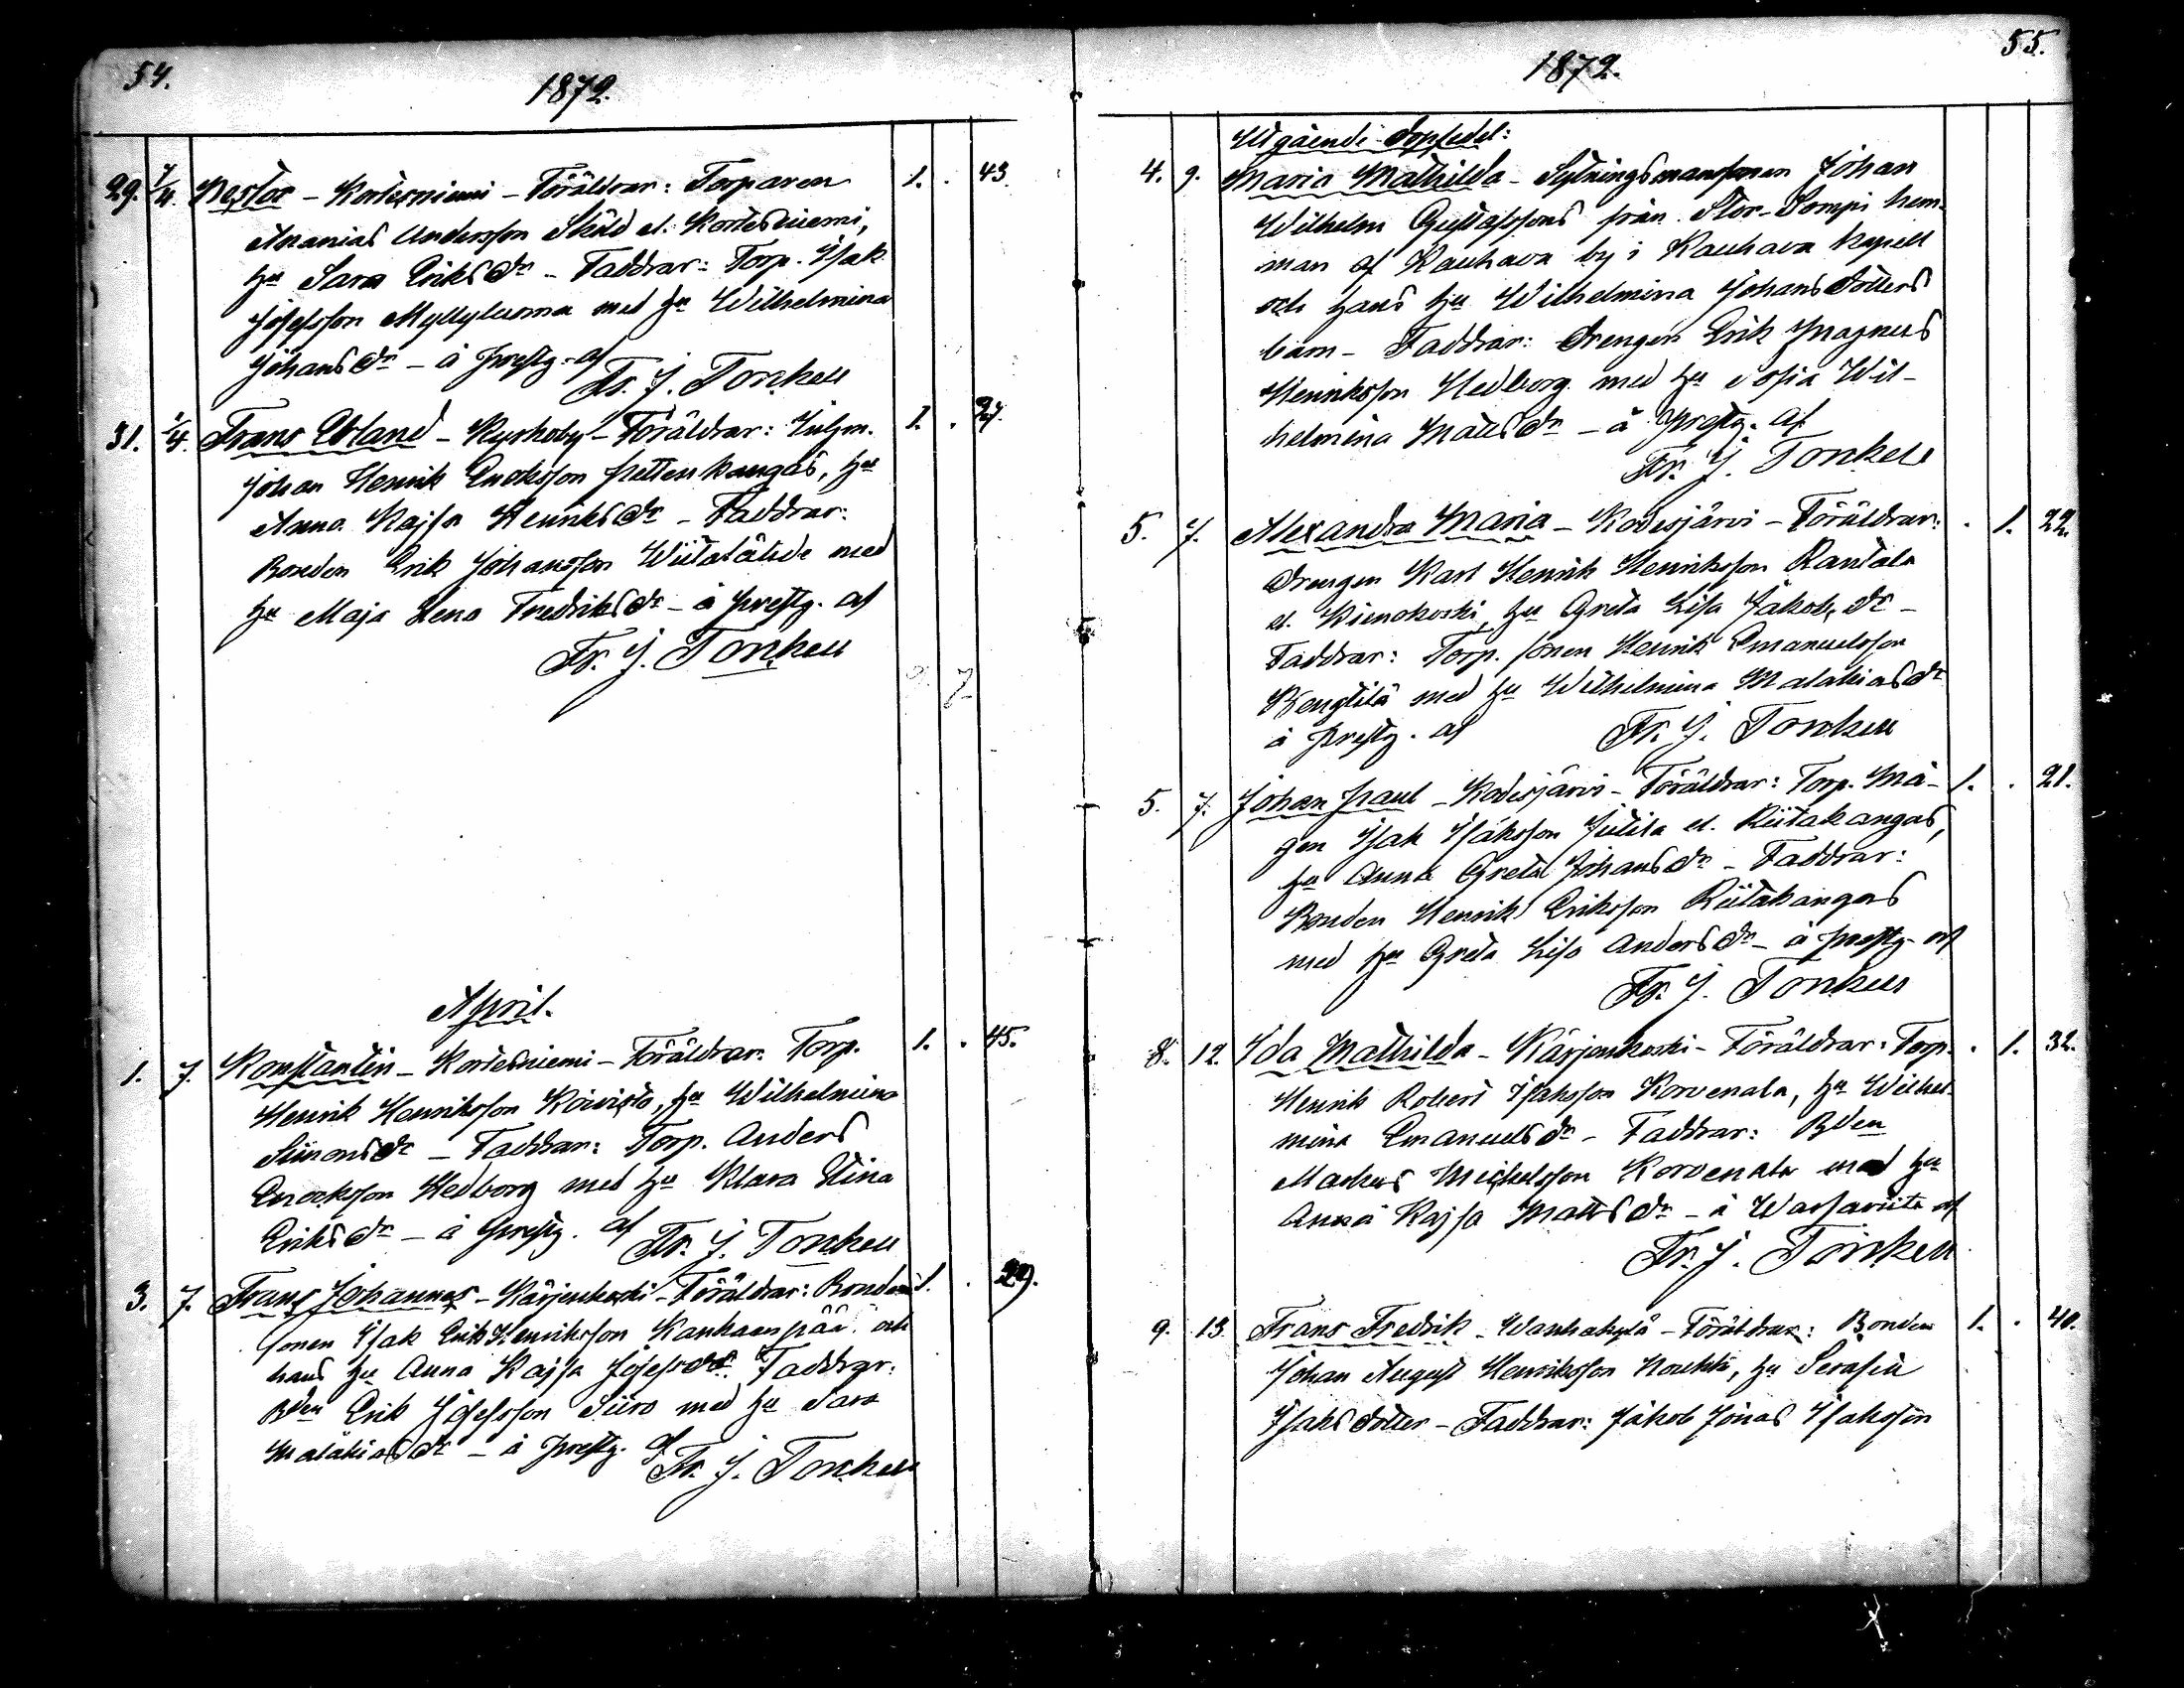 54.
1872.
29. 7/4. Nestor - Kortesniemi - Föräldrar: Torparen 1. . 43.
Ananias Andersson Sköld el. Kortesniemi,
hu Sara Eriksdr - Faddrar: Torp. Isak
Josefsson Myllyluoma med hu Wilhelmina
Johansdr - å prestg. af
Fr. J. Tonken
31. 1/4. Frans Erland - Kyrkoby - Föräldrar: Inhm. 1. . 27.
Johan Henrik Enoksson Pettenkangas, hu
Anna Kajsa Henriksdr - Faddrar:
Bonden Erik Johansson Wiitalähde med
hu Maja Lena Fredriksdr - å prestg. af
Fr. J. Tonken
April.
1. 7. Konstantin - Kortesniemi - Föräldrar: Torp. 1. . 45.
Henrik Henriksson Koivisto, hu Wilhelmina
Simonsdr - Faddrar: Torp. Anders
Enocksson Hedborg med hu Klara Stina
Eriksdr - å prestg. af Fr. J. Tonken
3. 7. Frans Johannes - Kärjenkoski - Föräldrar: Bonde 1. . 29.
sonen Isak Erik Henriksson Kankaanpää och
hans hu Anna Kajsa Josefsdr. Faddrar:
Bden Erik Josefsson Siiro med hu Sara
Malakiasdr - å prestg. af
Fr. J. Tonken
55.
1872.
Utgående dopsedel:
4. 9. Maria Mathilda - Sytningsmansonen Johan
Wilhelm Gustafssons från Stor-Sompi hem-
man af Kauhava by i Kauhava kapell
och hans hu Wilhelmina Johansdotters
barn - Faddrar: drengen Erik Magnus
Henriksson Hedborg med hu Sofia Wil-
helmina Mattsdr - å prestg. af
Fr. J. Tonken
5. 7. Alexandra Maria - Kodesjärvi - Föräldrar: . 1. 22.
drengen Karl Henrik Henriksson Rantala
el. Kienokoski, hu Greta Lisa Jakobsdr -
Faddrar: Torp. sonen Henrik Emanuelsson
Bengtilä med hu Wilhelmina Malakiasdr
å prestg. af Fr. J. Tonken
5. 7. Johan Paul - Kodesjärvi - Föräldrar: Torp. Må- 1. . 21.
gen Isak Isaksson Jutila el. Riitakangas,
hu Anna Greta Johansdr - Faddrar:
Bonden Henrik Eriksson Riitakangas
med hu Greta Lisa Andersdr - å prestg. af
Fr. J. Tonken
8. 12. Ida Mathilda - Kärjenkoski - Föräldrar: Torp. . 1. 32.
Henrik Robert Isaksson Korvenala, hu Wilhel-
mina Emanuelsdr - Faddrar: Bden
Markus Michelsson Korvenala med hu
Anna Kajsa Mattsdr - å af
Fr. J. Tonken
9. 13. Frans Fredrik - Wanhakylä - Föräldrar: Bonden 1. . 40.
Johan August Henriksson Koukki, hu Serafia
Isaksdotter - Faddrar: Jakob Jonas Isaksson